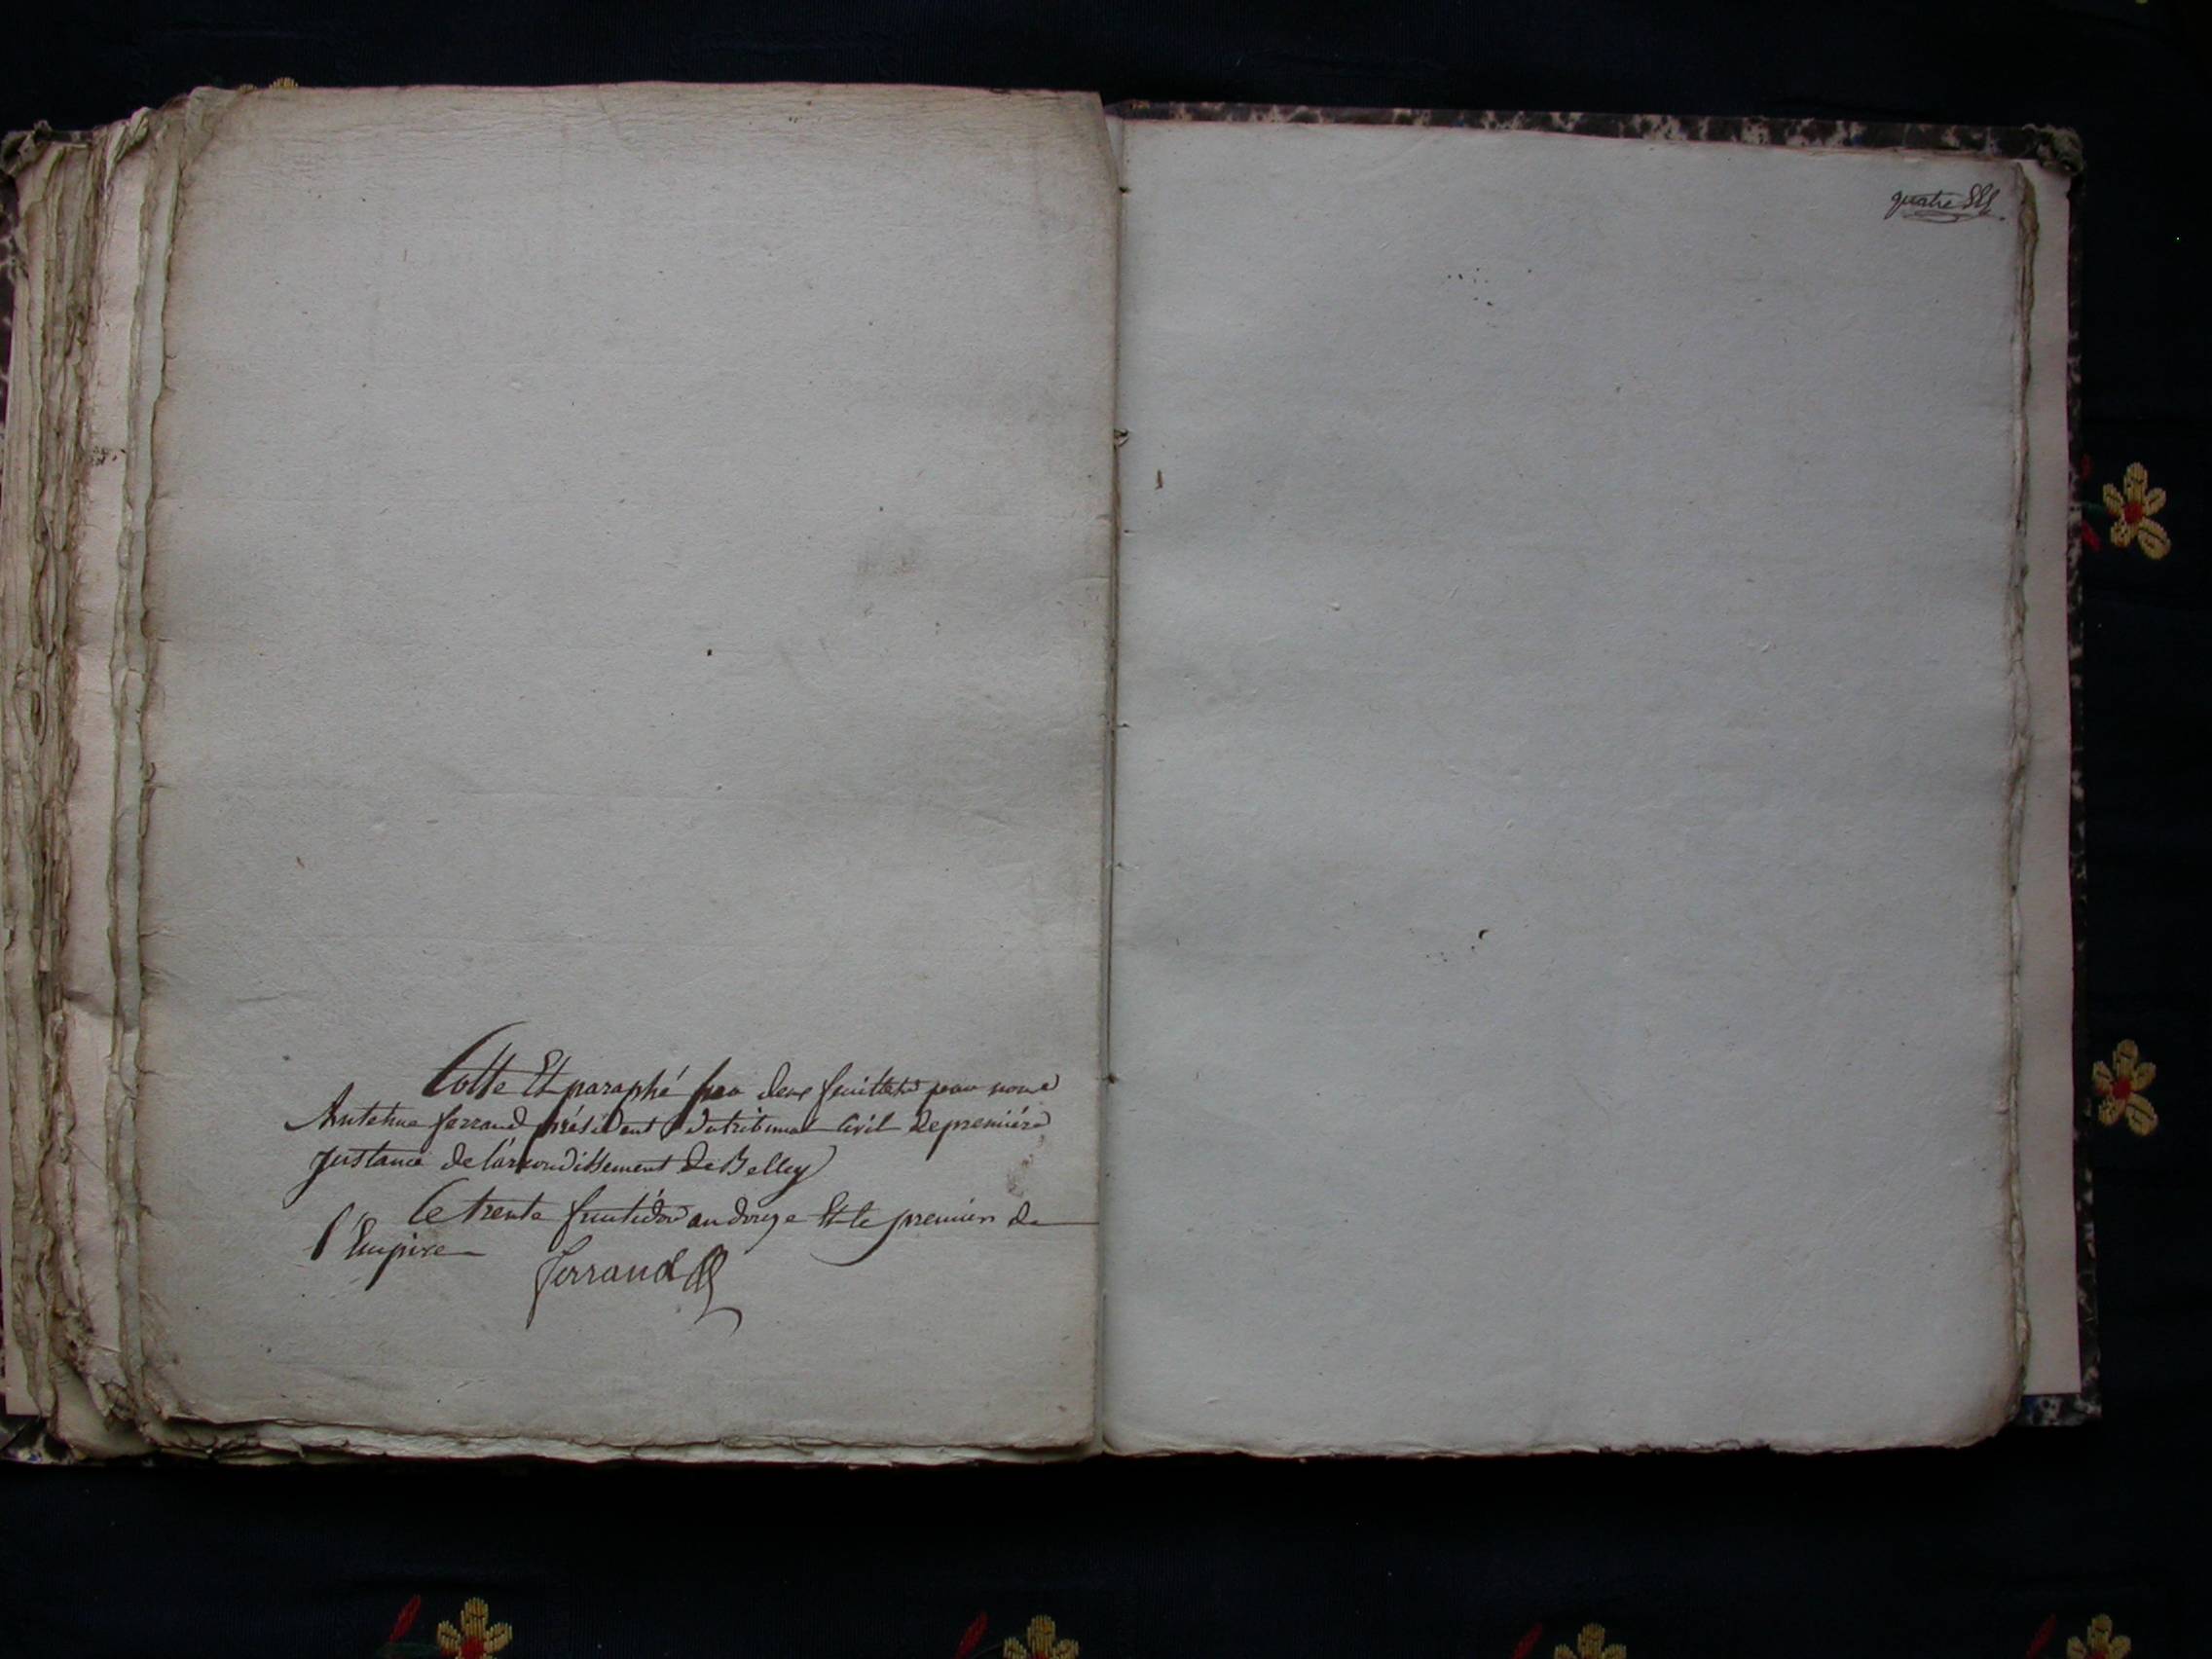 Cotté Et paraphé par deux feuillets par nous
Anthelme ferrand président du tribunal Civil de première
Instance de l'arrondissement de Belley
Ce trente fructidor an douze Et le premier de
l'Empire
ferrand
quatre